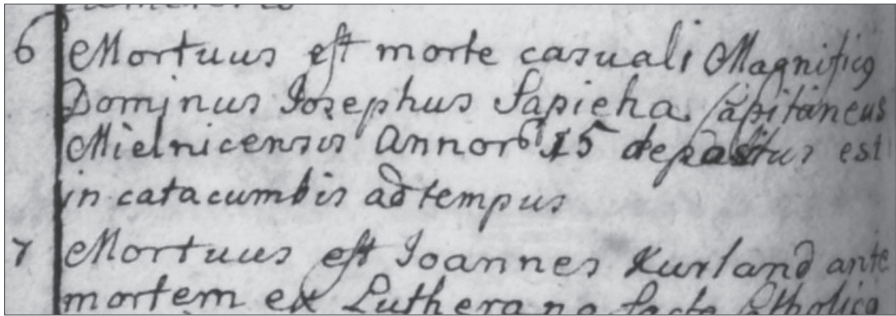 6 Mortuus est morte casuali Magnificg
Dominus Josephus Sapieha Capitaneus
Mielnicensis Annor 15 depositus est
in catacumbis ad tempus
7 Mortuus est Joannes Kurland ante
mortem ex Lutherano facto Catholico